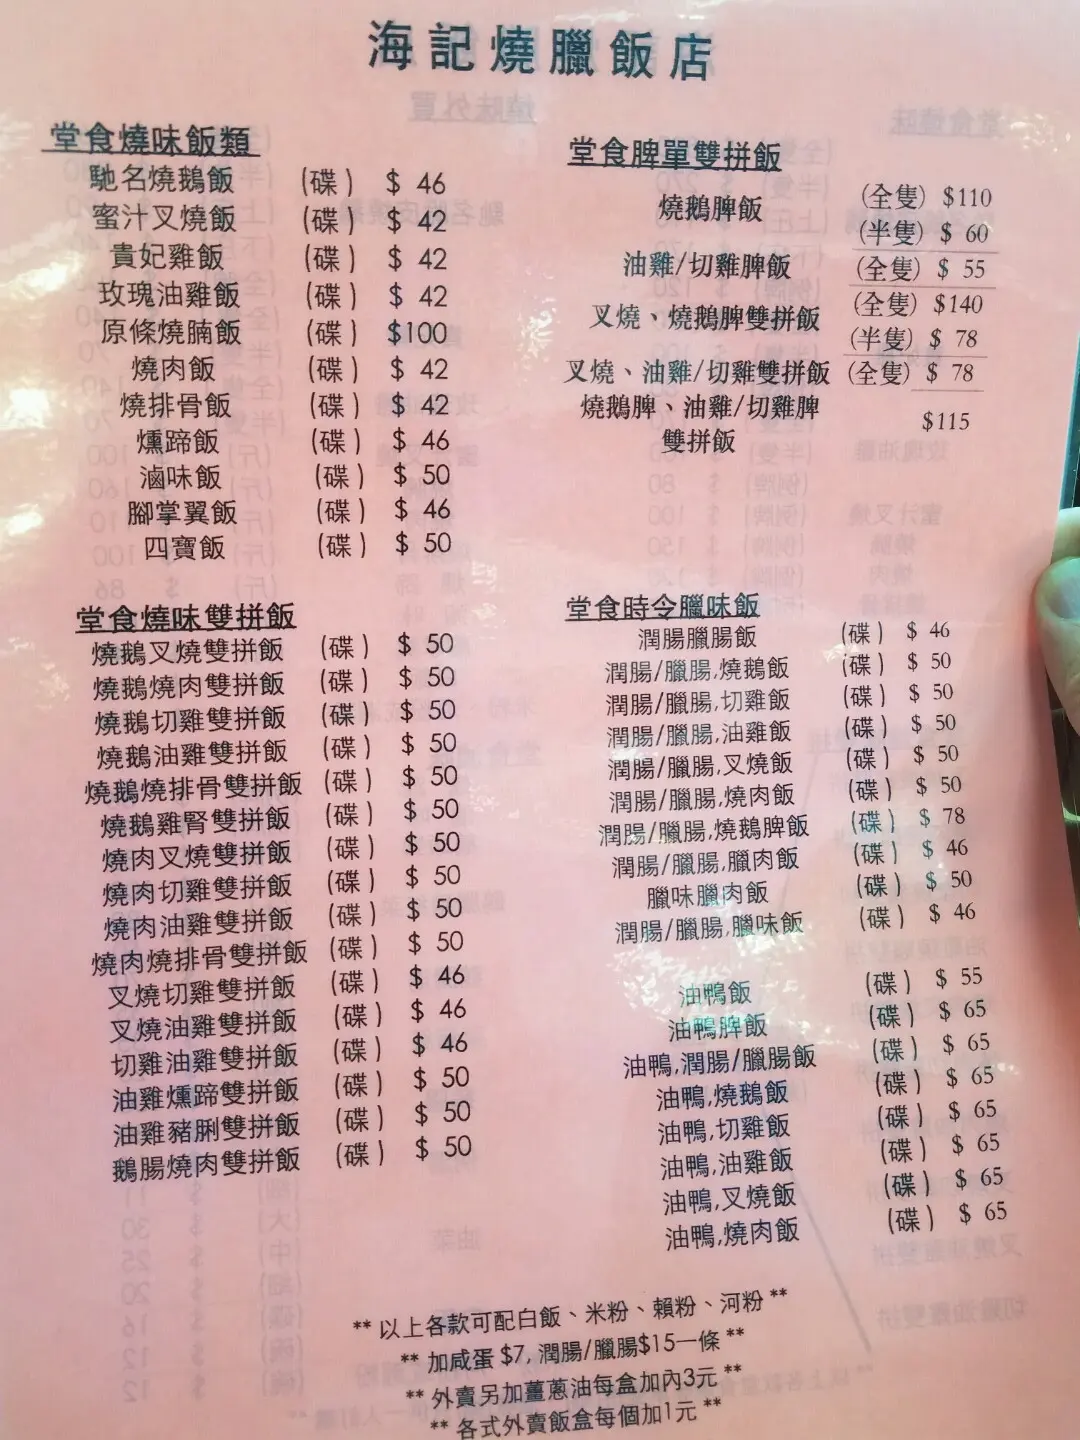 海記燒臘飯店
堂食燒味飯類
馳名燒鵝飯 (碟) $ 46
蜜汁叉燒飯 (碟) $ 42
貴妃雞飯 (碟) $ 42
玫瑰油雞飯 (碟) $ 42
原條燒腩飯 (碟) $100
燒肉飯 (碟) $ 42
燒排骨飯 (碟) $ 42
燻蹄飯 (碟) $ 46
滷味飯 (碟) $ 50
腳掌翼飯 (碟) $ 46
四寶飯 (碟) $ 50
堂食燒味雙拼飯
燒鵝叉燒雙拼飯 (碟) $ 50
燒鵝燒肉雙拼飯 (碟) $ 50
燒鵝切雞雙拼飯 (碟) $ 50
燒鵝油雞雙拼飯 (碟) $ 50
燒鵝燒排骨雙拼飯 (碟) $ 50
燒鵝雞腎雙拼飯 (碟) $ 50
燒肉叉燒雙拼飯 (碟) $ 50
燒肉切雞雙拼飯 (碟) $ 50
燒肉油雞雙拼飯 (碟) $ 50
燒肉燒排骨雙拼飯 (碟) $ 50
叉燒切雞雙拼飯 (碟) $ 46
叉燒油雞雙拼飯 (碟) $ 46
切雞油雞雙拼飯 (碟) $ 46
油雞燻蹄雙拼飯 (碟) $ 50
油雞豬脷雙拼飯 (碟) $ 50
鵝腸燒肉雙拼飯 (碟) $ 50
堂食脾單雙拼飯
燒鵝脾飯 (全隻) $110
(半隻) $ 60
油雞/切雞脾飯 (全隻) $ 55
叉燒、燒鵝脾雙拼飯 (全隻) $140
(半隻) $ 78
叉燒、油雞/切雞雙拼飯 (全隻) $ 78
燒鵝脾、油雞/切雞脾
雙拼飯 $115
堂食時令臘味飯
潤腸臘腸飯 (碟) $ 46
潤腸/臘腸,燒鵝飯 (碟) $ 50
潤腸/臘腸,切雞飯 (碟) $ 50
潤腸/臘腸,油雞飯 (碟) $ 50
潤腸/臘腸,叉燒飯 (碟) $ 50
潤腸/臘腸,燒肉飯 (碟) $ 50
潤腸/臘腸,燒鵝脾飯 (碟) $ 78
潤腸/臘腸,臘肉飯 (碟) $ 46
臘味臘肉飯 (碟) $ 50
潤腸/臘腸,臘味飯 (碟) $ 46
油鴨飯 (碟) $ 55
油鴨脾飯 (碟) $ 65
油鴨,潤腸/臘腸飯 (碟) $ 65
油鴨,燒鵝飯 (碟) $ 65
油鴨,切雞飯 (碟) $ 65
油鴨,油雞飯 (碟) $ 65
油鴨,叉燒飯 (碟) $ 65
油鴨,燒肉飯 (碟) $ 65
** 以上各款可配白飯、米粉、賴粉、河粉 **
** 加咸蛋 $7, 潤腸/臘腸$15一條 **
** 外賣另加薑蔥油每盒加內3元 **
** 各式外賣飯盒每個加1元 **